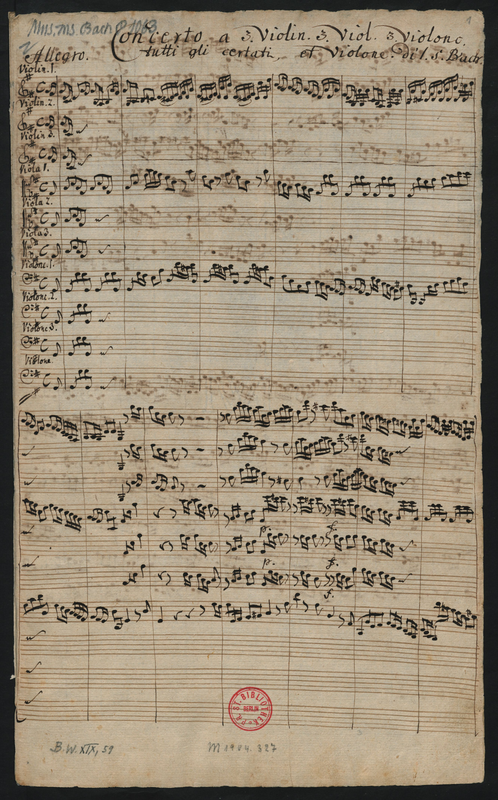 Mus. ms. Bach P 1063
Concerto a 3. Violin. 3. Viol. 3. Violonc.
Allegro. tutti gli certati, et Violone. di J. S. Bach.
1
Violin. 1.
Violin. 2.
Violin 3.
Viola 1.
Viola 2.
Viola 3.
Violonc. 1.
Violonc. 2.
Violonc. 3.
Violone.
p. f.
p. f.
f.
BIBLIOTHEK
BERLIN
B. W. XIX, 59